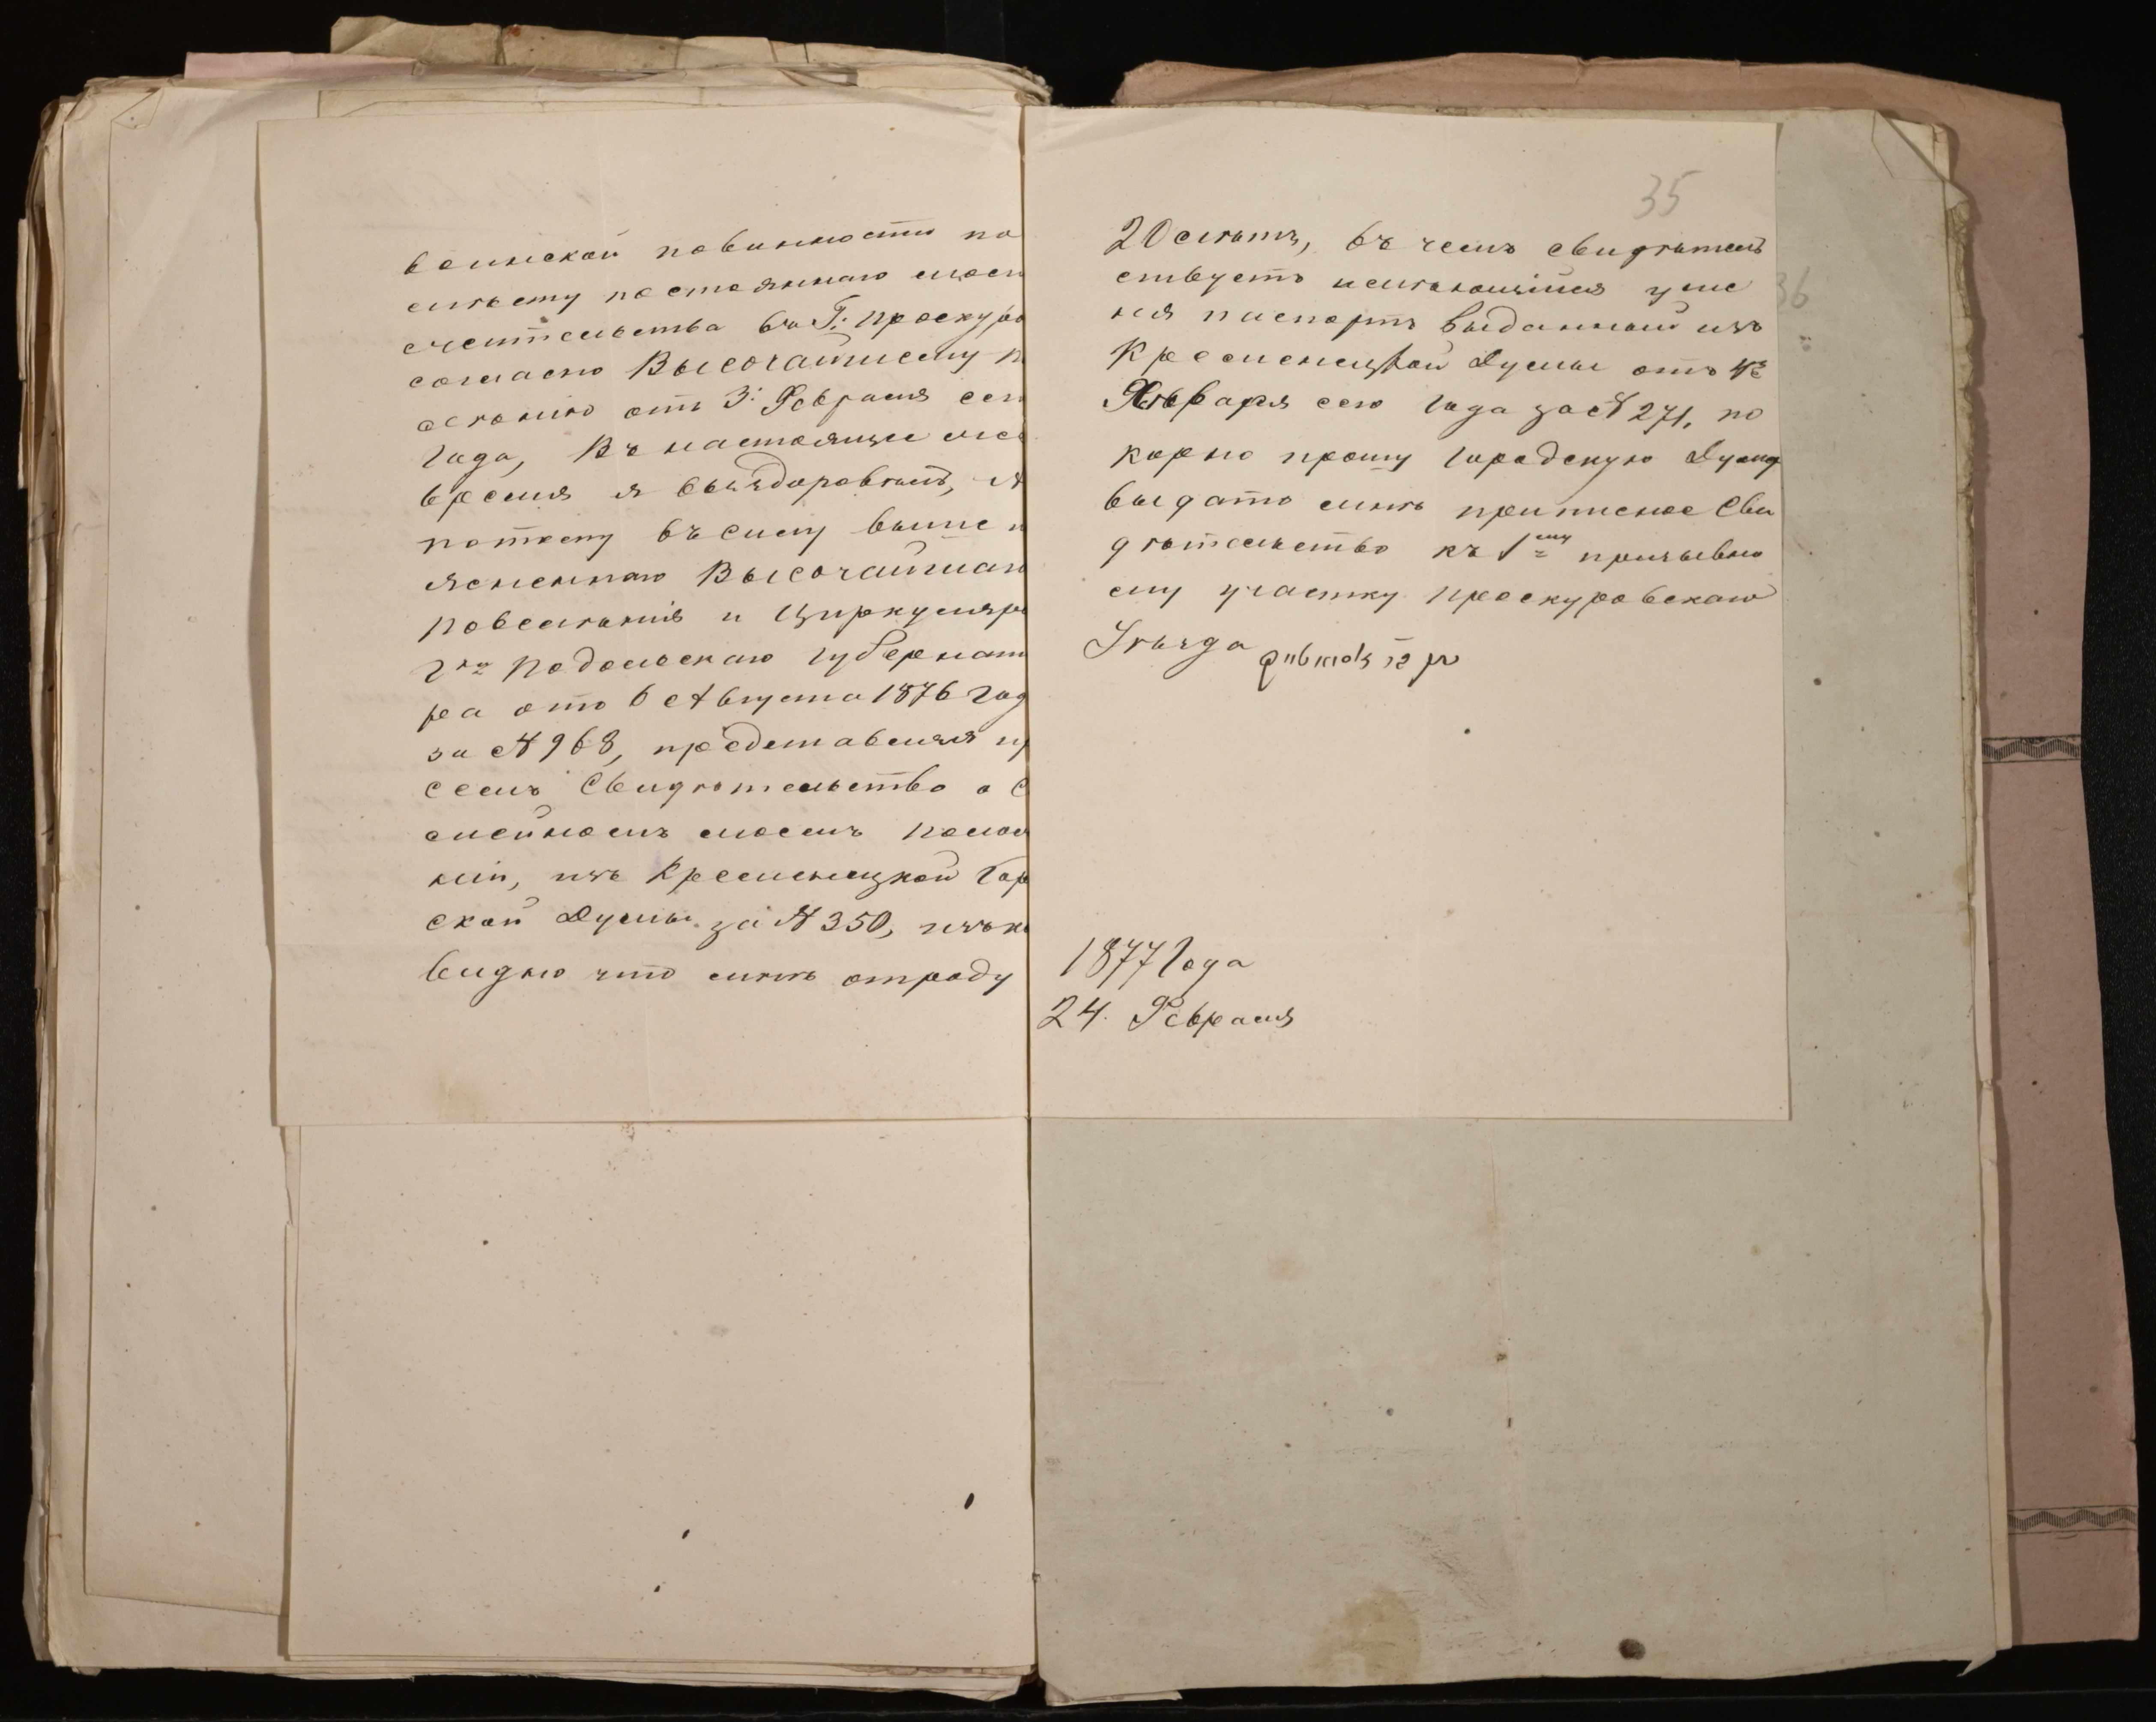 воинской повинности по
моему постоянному мѣст
жительства въ Г: Проскуро
согласно Высочайшему п
велѣнію отъ 3: Февраля сег
года, Въ настоящее же
время я выздоровѣлъ, А
потому въ силу выше и
ясненнаго Высочайшаго
повелѣнія и Циркуляра
Гна Подольскаго Губернато
ра отъ 6 Августа 1876 год
за № 968, представляя пр
семъ Свидѣтельство о С
мейномъ моемъ полож
ніи, изъ Кременецкой Гор
ской Думы за № 350, изъ ко
видно что мнѣ отроду
35
20 лѣтъ, въ чемъ свидѣтель
ствуетъ имѣющійся у ме
ня паспортъ выданный изъ
Кременецкой Думы отъ
Января сего года за № 271, по
корно прошу городскую Думу
выдать мнѣ приписное Сви
дѣтельство къ 1му призывно
му участку Проскуровскаго
Уѣзда
1877 Года
24. Февраля
36